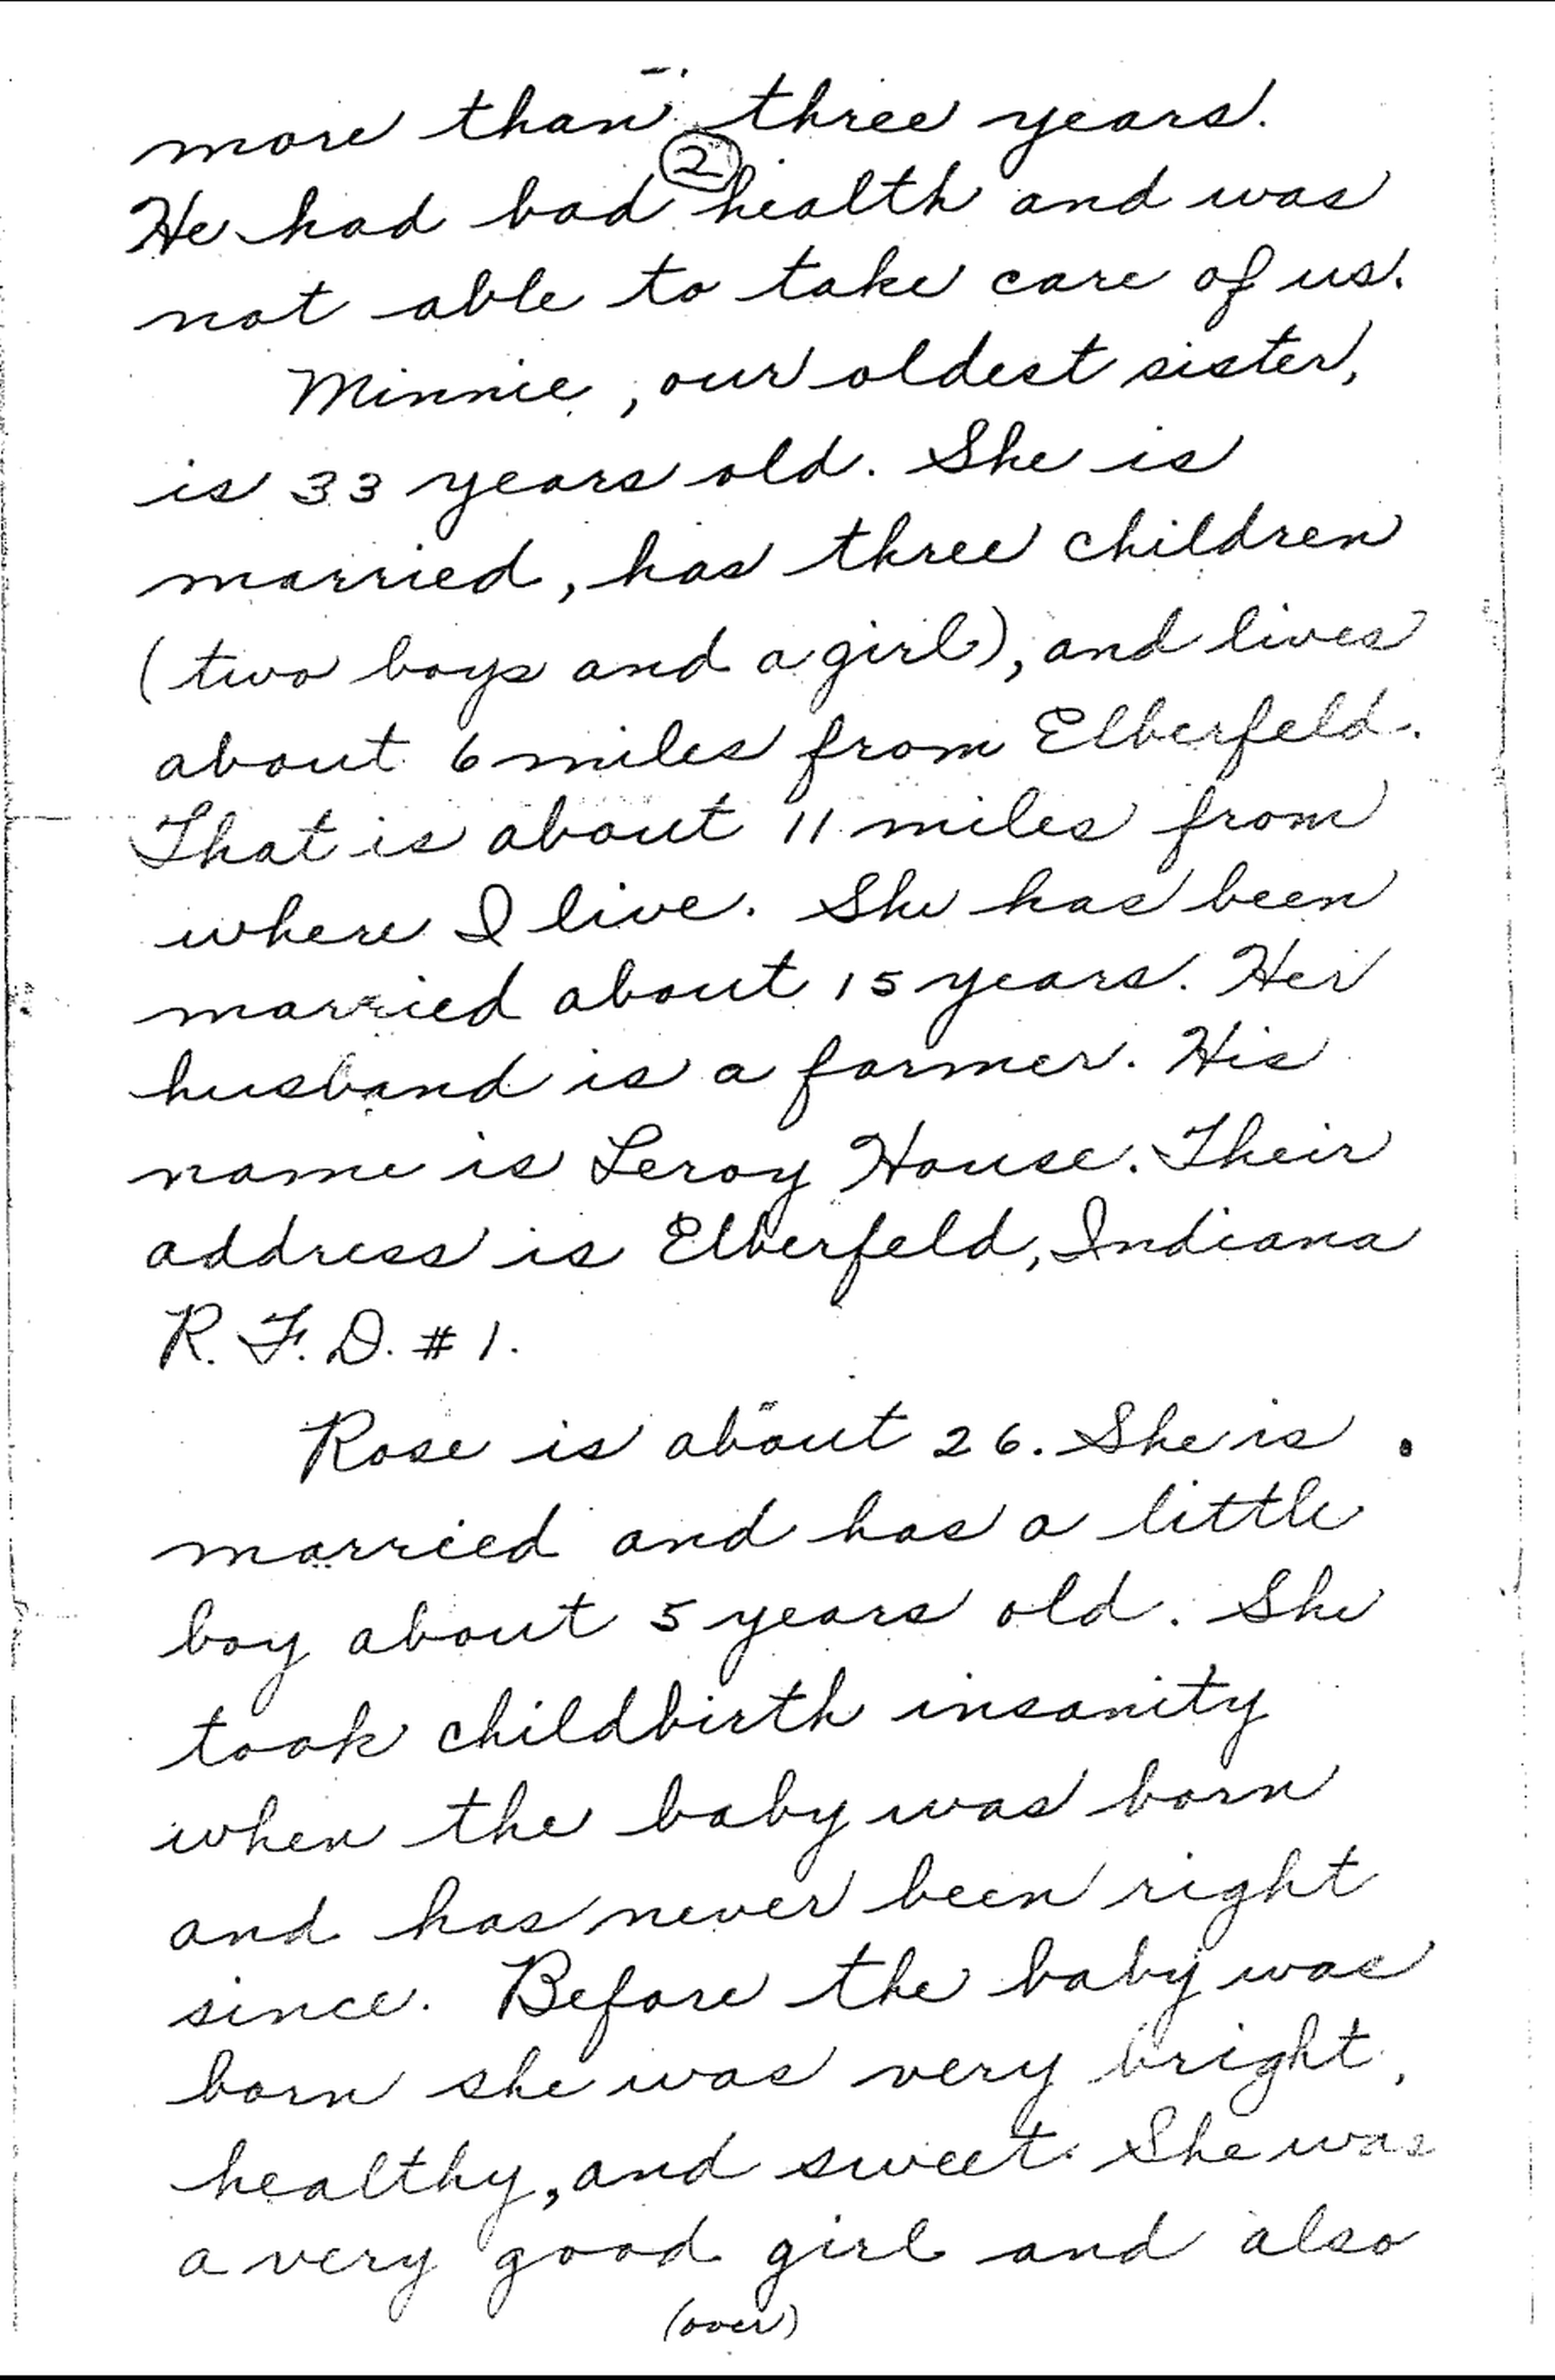 more than three years.
②
He had bad health and was
not able to take care of us.
Minnie, our oldest sister,
is 33 years old. She is
married, has three children
(two boys and a girl), and lives
about 6 miles from Elberfeld.
That is about 11 miles from
where I live. She has been
married about 15 years. Her
husband is a farmer. His
name is Leroy House. Their
address is Elberfeld, Indiana
R. F. D. # 1.
Rose is about 26. She is
married and has a little
boy about 5 years old. She
took childbirth insanity
when the baby was born
and has never been right
since. Before the baby was
born she was very bright,
healthy, and sweet. She was
a very good girl and also
(over)